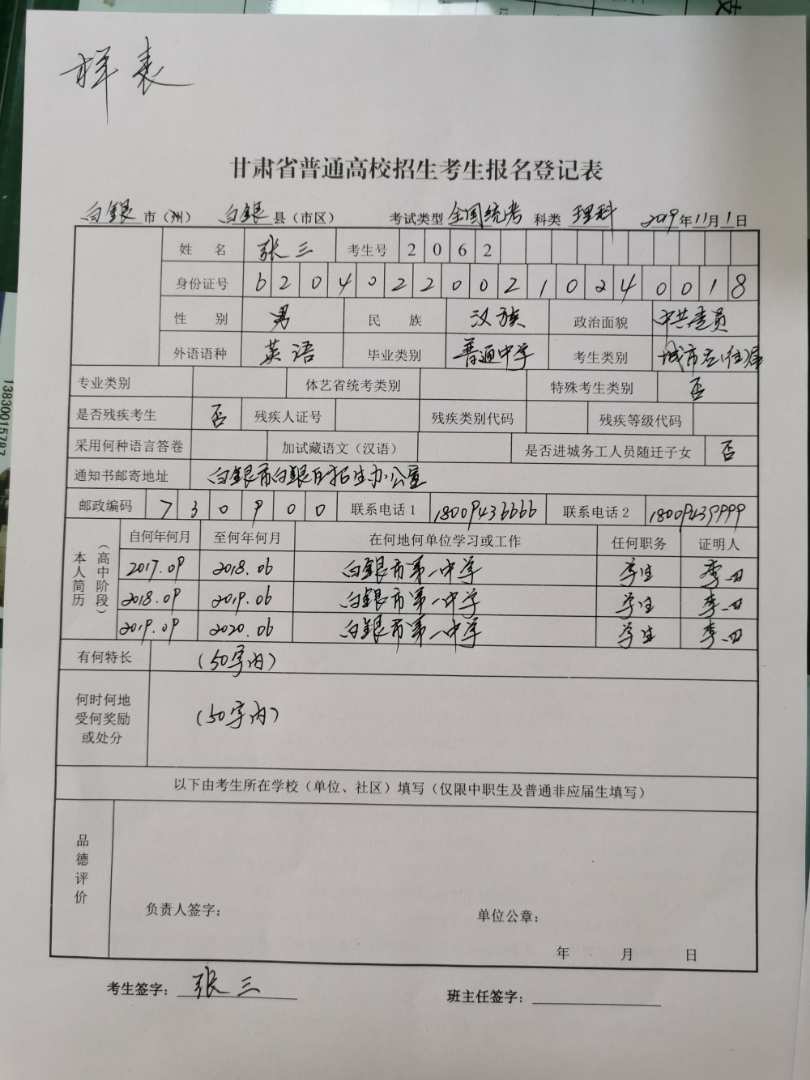 样表
甘肃省普通高校招生考生报名登记表
白银市（州） 白银县（市区） 考试类型 全国统考 科类 理科 2019年11月1日
姓 名 张三 考生号 2062
身份证号 620402200210240018
性 别 男 民 族 汉族 政治面貌 中共党员
外语语种 英语 毕业类别 普通中学 考生类别 城市应(往)届
专业类别 体艺省统考类别 特殊考生类别 否
是否残疾考生 否 残疾人证号 残疾类别代码 残疾等级代码
采用何种语言答卷 加试藏语文（汉语） 是否进城务工人员随迁子女 否
通知书邮寄地址 白银市白银区招生办公室
邮政编码 730900 联系电话1 18009436666 联系电话2 18009439999
本人简历（高中阶段） 自何年何月 至何年何月 在何地何单位学习或工作 任何职务 证明人
2017.09 2018.06 白银市第一中学 学生 李四
2018.09 2019.06 白银市第一中学 学生 李四
2019.09 2020.06 白银市第一中学 学生 李四
有何特长 (50字内)
何时何地
受何奖励 (50字内)
或处分
以下由考生所在学校（单位、社区）填写（仅限中职生及普通非应届生填写）
品德评价
负责人签字： 单位公章：
年 月 日
考生签字： 张三 班主任签字：